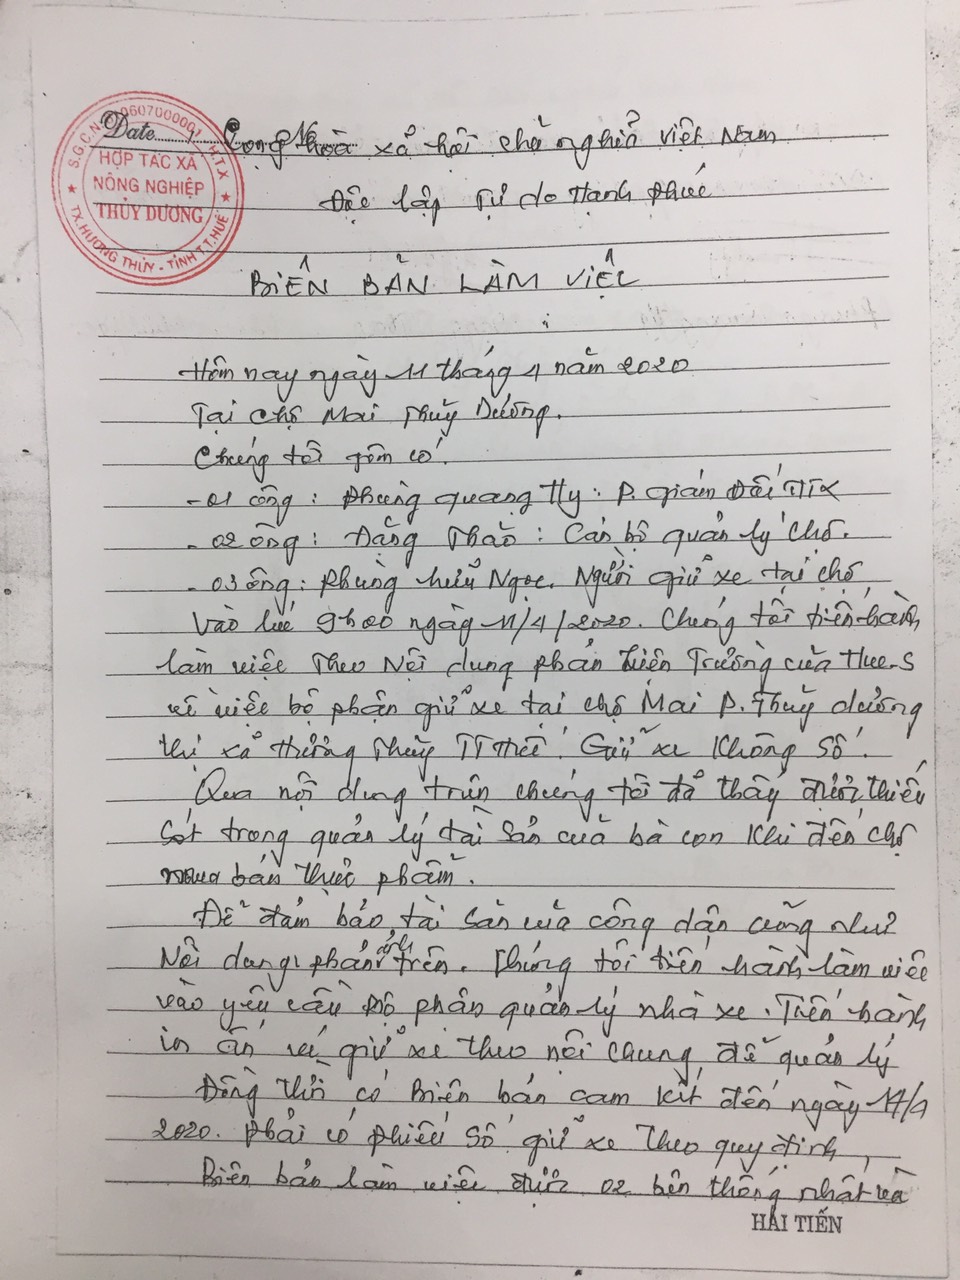 S.G.C.N: 0607000001 H.T.X
HỢP TÁC XÃ
NÔNG NGHIỆP
THỦY DƯƠNG
TX.HƯƠNG THỦY - TỈNH T.T.HUẾ
Date
Cộng Hòa xã hội chủ nghĩa Việt Nam
Độc lập Tự do Hạnh phúc
BIÊN BẢN LÀM VIỆC
Hôm nay ngày 11 tháng 1 năm 2020
Tại Chợ Mai Thủy Dương.
Chúng tôi gồm có.
- 01 ông: Phùng Quang Hy: P. giám Đốc HTX
- 02 ông: Đặng Thảo: Cán bộ quản lý chợ.
- 03 ông: Phùng hữu Ngọc. Người giữ xe tại chợ
Vào lúc 9h00 ngày 11/1/2020. Chúng tôi tiến hành
làm việc Theo Nội dung phản hiện Trường của Hue-S
về việc bộ phận giữ xe tại chợ Mai P. Thủy dương
thị xã Hương Thủy TT Huế. Giữ xe không số.
Qua nội dung trên chúng tôi đã thấy được thiếu
sót trong quản lý tài sản của bà con khi đến chợ
mua bán thực phẩm.
Để đảm bảo tài sản của công dân cũng như
Nội dung phản ánh trên. Chúng tôi tiến hành làm việc
vào yêu cầu bộ phận quản lý nhà xe. Tiến hành
in ấn vé giữ xe theo nội chung để quản lý
Đồng thời có Biên bản cam kết đến ngày 17/1
2020. Phải có phiếu số giữ xe theo quy định,
Biên bản làm việc được 02 bên thống nhất và
HẢI TIẾN